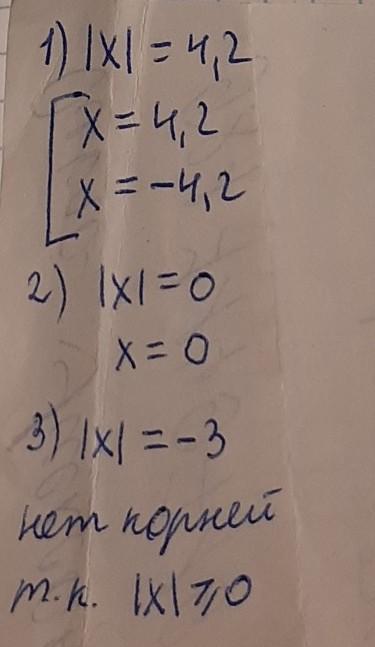 1) |x| = 4,2
x = 4,2
x = -4,2
2) |x| = 0
x = 0
3) |x| = -3
нет корней
т.к. |x| ⩾ 0